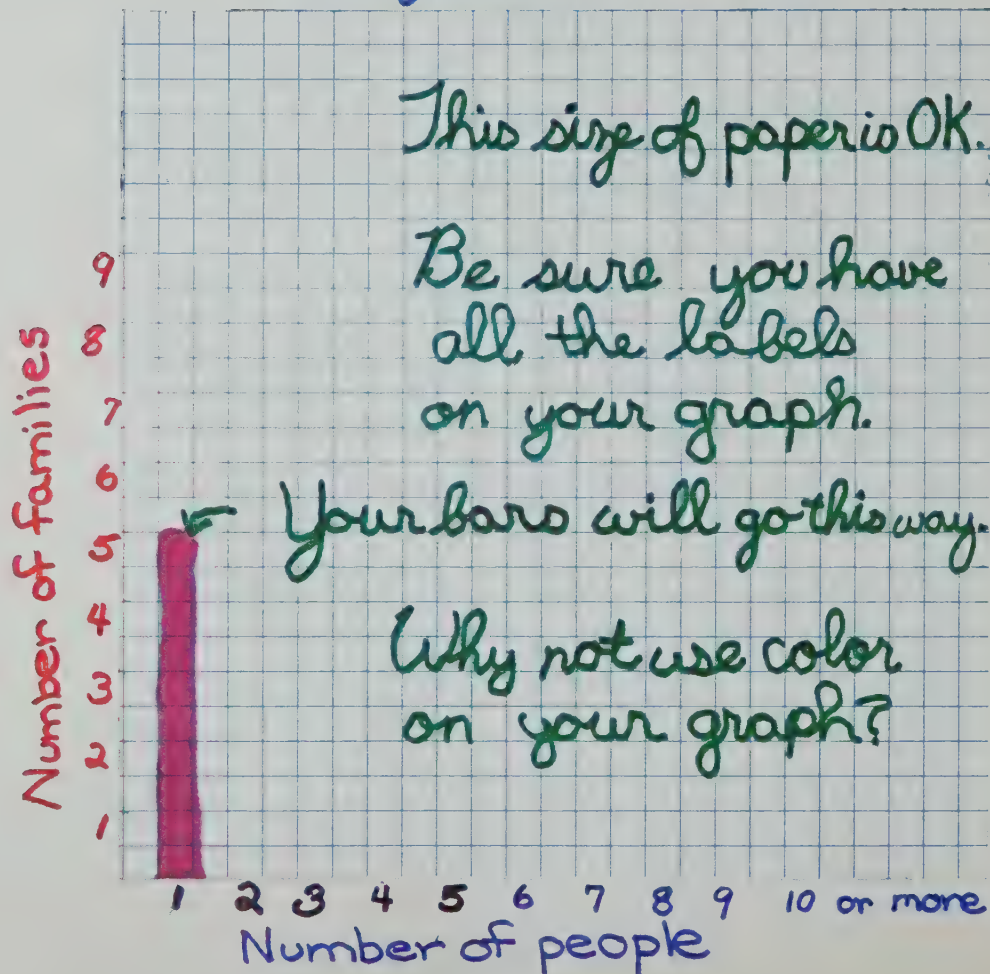 This size of paper is OK.
Be sure you have
all the labels
on your graph.
Your bars will go this way.
Why not use color
on your graph?
Number of families
9
8
7
6
5
4
3
2
1
1 2 3 4 5 6 7 8 9 10 or more
Number of people